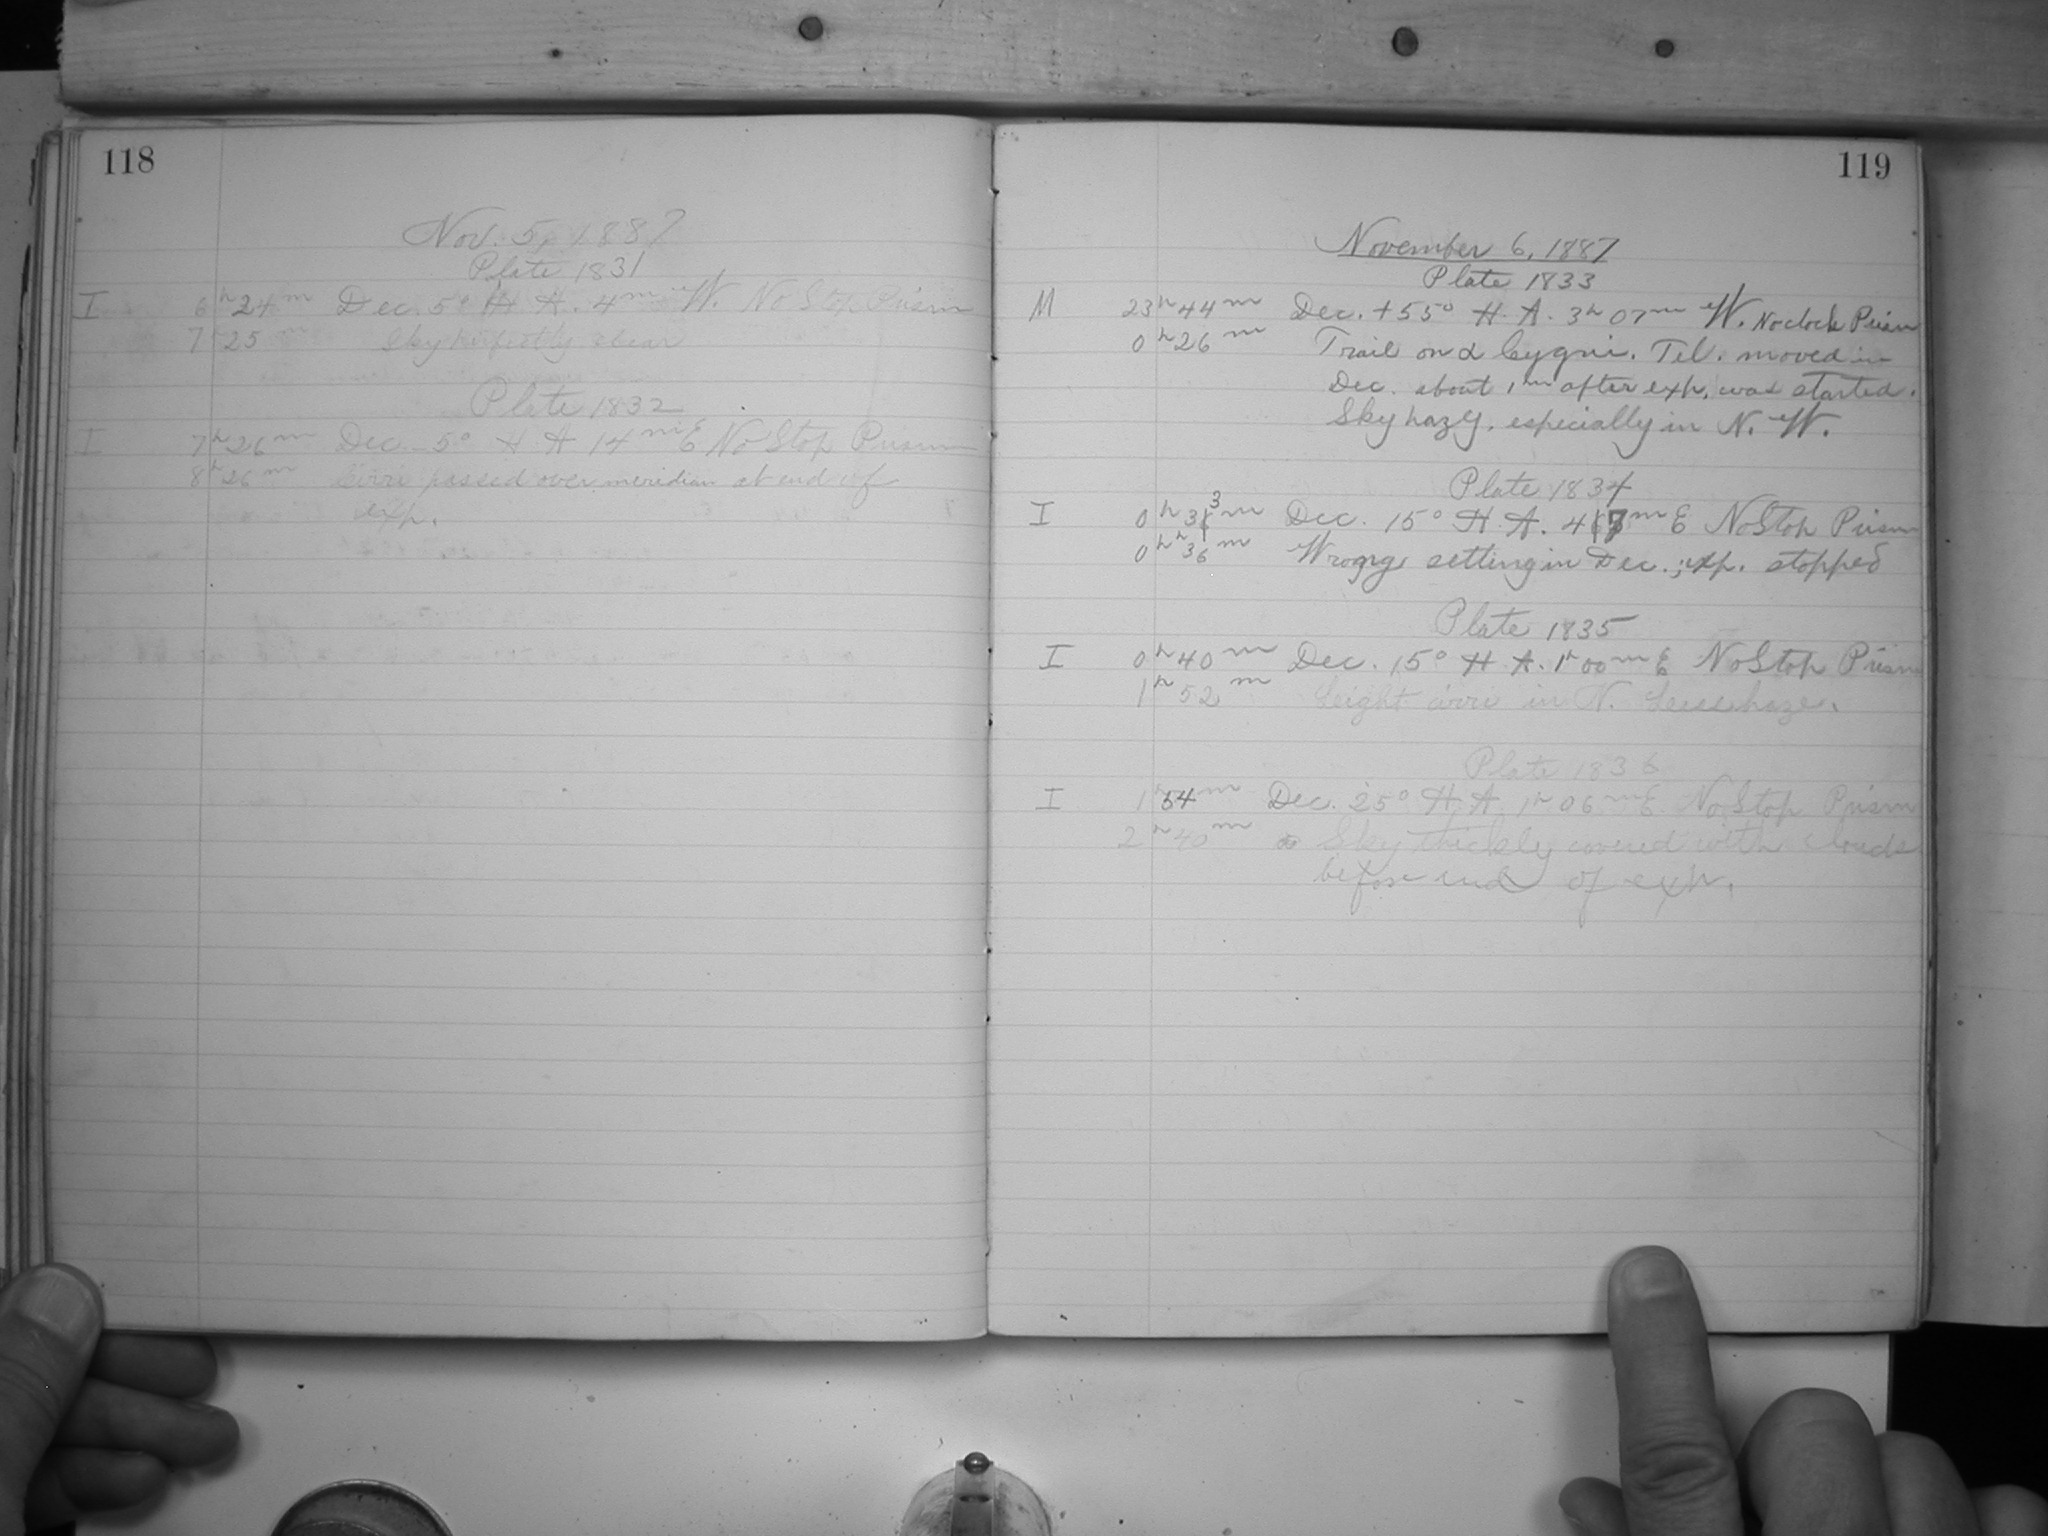 118
Nov. 5, 1887
Plate 1831
I 6h 24m Dec. 5° H. A. 4m W. No Stop Prism
7 25 m Sky perfectly clear
Plate 1832
I 7h 26m Dec. -5° H A 14m E No Stop Prism
8h 26m Cirri passed over meridian at end of
exp.
119
November 6, 1887
Plate 1833
M 23h 44m Dec. +55° H. A. 3h 07m W. No clock Prism
0h 26m Trail on α Cygni. Tel. moved in
Dec. about 1m after exp. was started.
Sky hazy, especially in N. W.
Plate 1834
I 0h 33m Dec. 15° H. A. 47m E No Stop Prism
0h 36m Wrong setting in Dec.; exp. stopped
Plate 1835
I 0h 40m Dec. 15° H. A. 1h 00m E No Stop Prism
1h 52m Light cirri in N. Less haze.
Plate 1836
I 1h 54m Dec. 25° H. A. 1h 06m E. No Stop Prism
2h 40m Sky thickly covered with clouds
before end of exp.